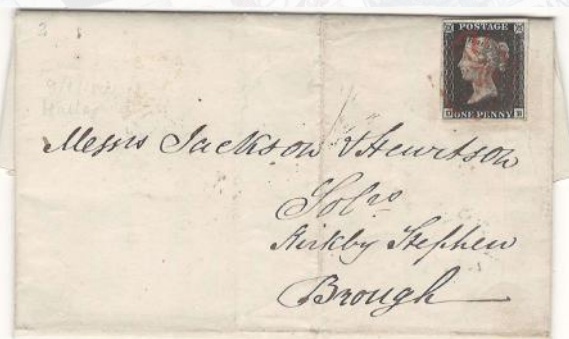 POSTAGE
ONE PENNY
Messrs Jackson & Hewitson
Solrs
Kirkby Stephen
Brough